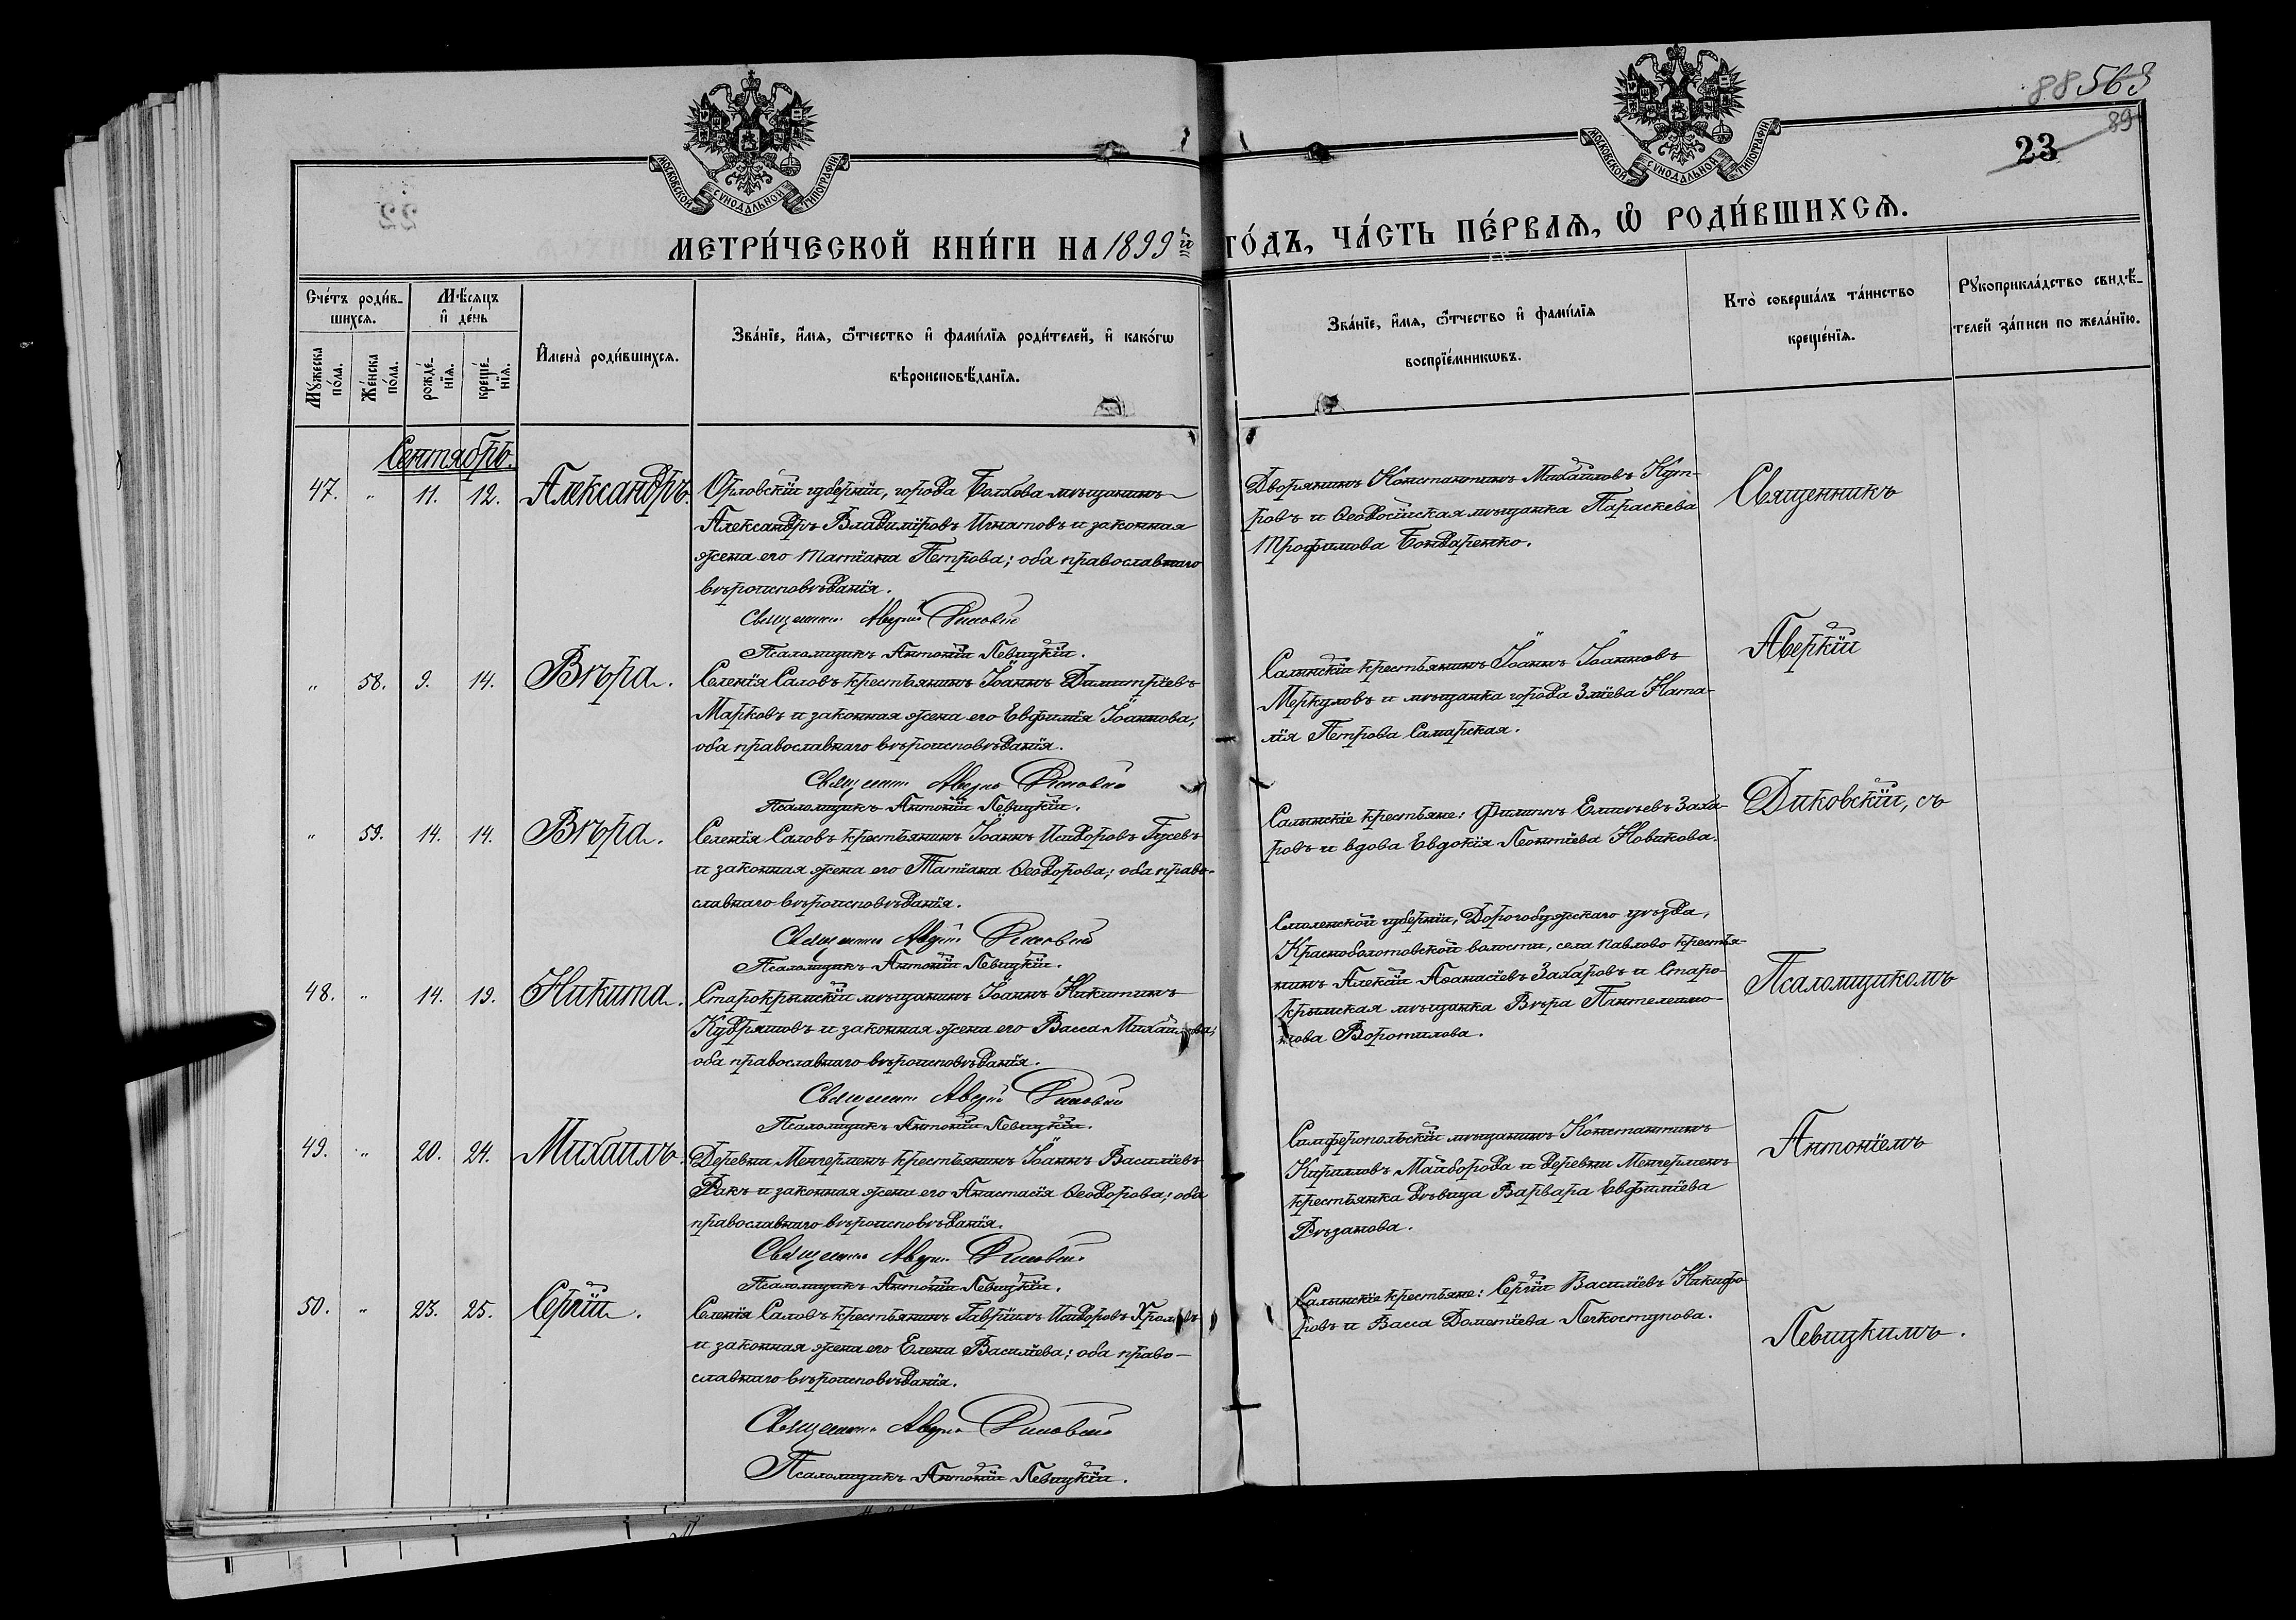 88 563
89
23
МОСКОВСКОЙ СѴНОДАЛЬНОЙ ТИПОГРАФІИ
МОСКОВСКОЙ СѴНОДАЛЬНОЙ ТИПОГРАФІИ
МЕТРИ́ЧЕСКОЙ КНИ́ГИ НА 1899й ГО́ДЪ, ЧА́СТЬ ПЕ́РВАѦ, Ѽ РОДИ́ВШИХСѦ.
Сче́тъ роди́в-
шихсѧ.
Мꙋ́жеска по́ла.
Же́нска по́ла.
Мѣ́сѧцъ
и҆ де́нь
рожде́-
нїѧ.
креще́-
нїѧ.
И҆мена̀ роди́вшихсѧ.
Зва́нїе, и҆́мѧ, ѻ҆́тчество и҆ фами́лїѧ роди́телей, и҆ како́гѡ
вѣроисповѣ́данїѧ.
Зва́нїе, и҆́мѧ, ѻ҆́тчество и҆ фами́лїѧ
воспрїе́мникѡвъ.
Кто̀ соверша́лъ та́инство
креще́нїѧ.
Рꙋкоприкла́дство свидѣ́-
телей за́писи по жела́нїю.
Сентябрь.
47. " 11. 12. Александръ.
Орловскій губерніи, города Болхова мѣщанинъ
Александръ Владиміровъ Игнатовъ и законная
жена его Татіана Петрова; оба православнаго
вѣроисповѣданія.
Священникъ Аверкій Диковскій
Псаломщикъ Антоній Левицкій.
Дворянинъ Константинъ Михайловъ Куп-
ровъ и Ѳеодосійская мѣщанка Параскева
Трофимова Бондаренко.
" 58. 9. 14. Вѣра.
Селенія Саловъ крестьянинъ Іоаннъ Димитріевъ
Марковъ и законная жена его Евфимія Іоаннова;
оба православнаго вѣроисповѣданія.
Священникъ Аверкій Диковскій
Псаломщикъ Антоній Левицкій.
Салынскій крестьянинъ Іоаннъ Іоанновъ
Меркуловъ и мѣщанка города Зміева Ната-
лія Петрова Самарская.
" 59. 14. 14. Вѣра.
Селенія Саловъ крестьянинъ Іоаннъ Исидоровъ Гусевъ
и законная жена его Татіана Ѳеодорова; оба право-
славнаго вѣроисповѣданія.
Священникъ Аверкій Диковскій
Псаломщикъ Антоній Левицкій.
Салынскіе крестьяне: Филиппъ Елисѣевъ Заха-
ровъ и вдова Евдокія Леонтіева Новикова.
48. " 14. 19. Никита.
Старокрымскій мѣщанинъ Іоаннъ Никитинъ
Кудряшовъ и законная жена его Васса Михайлова;
оба православнаго вѣроисповѣданія.
Священникъ Аверкій Диковскій
Псаломщикъ Антоній Левицкій.
Смоленской губерніи, Дорогобужскаго уѣзда,
Красноболотовской волости, села Павлово крестья-
нинъ Алексій Аѳанасіевъ Захаровъ и Старо-
крымская мѣщанка Вѣра Пантелеимо-
нова Воротилова.
49. " 20. 24. Михаилъ.
Деревни Менгерменъ крестьянинъ Іоаннъ Василіевъ
Ракъ и законная жена его Анастасія Ѳеодорова; оба
православнаго вѣроисповѣданія.
Священникъ Аверкій Диковскій
Псаломщикъ Антоній Левицкій.
Симферопольскій мѣщанинъ Константинъ
Кирилловъ Майборода и деревни Менгерменъ
крестьянка дѣвица Варвара Евфиміева
Рѣзанова.
50. " 23. 25. Сергій.
Селенія Саловъ крестьянинъ Гавріилъ Исидоровъ
и законная жена его Елена Василіева; оба право-
славнаго вѣроисповѣданія.
Священникъ Аверкій Диковскій
Псаломщикъ Антоній Левицкій.
Салынскіе крестьяне: Сергій Василіевъ Никифо-
ровъ и Васса Дометіева Легкоступова.
Священникъ
Аверкій
Диковскій, съ
Псаломщикомъ
Антоніемъ
Левицкимъ.